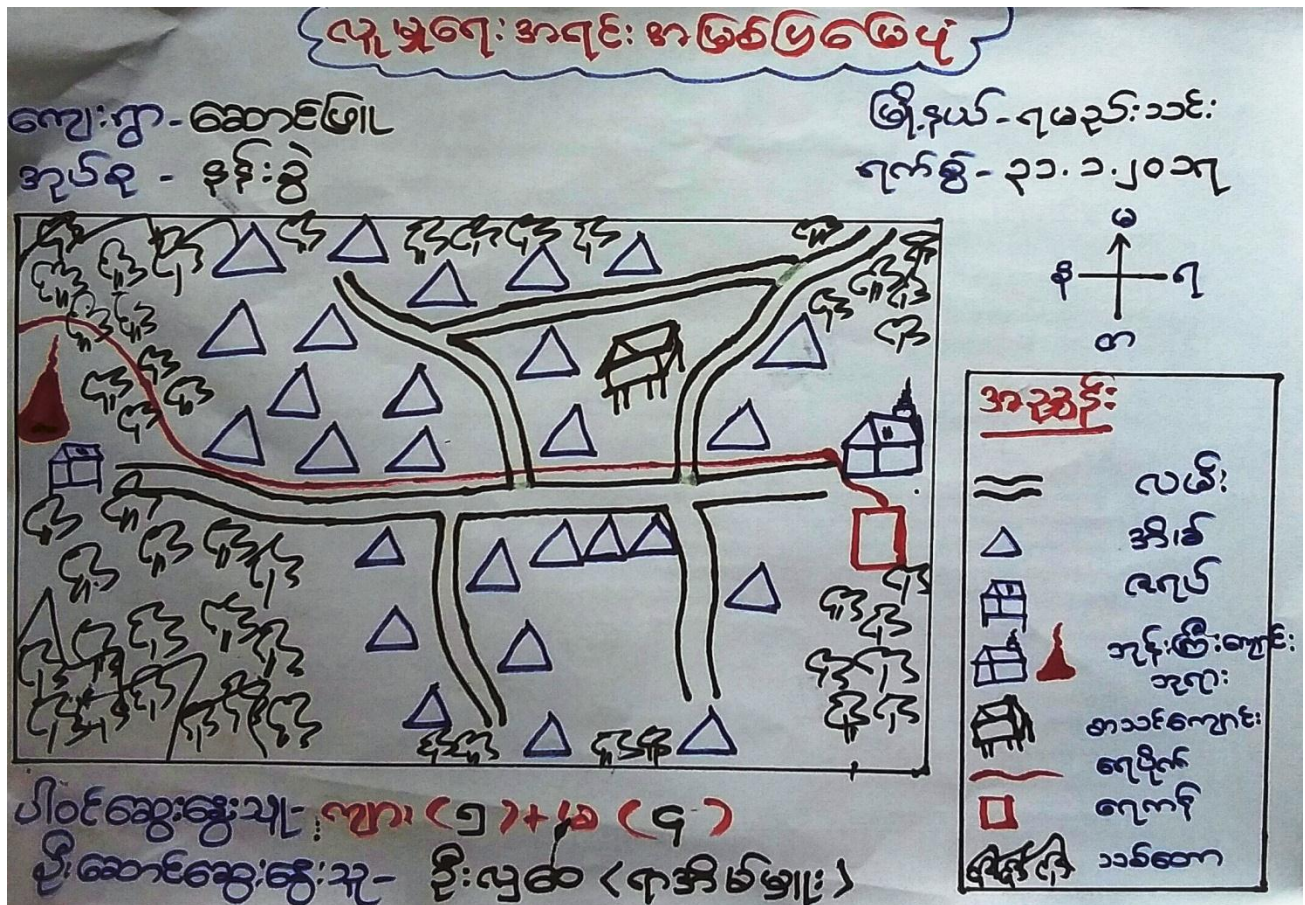 လူမှုရေးအရင်းအမြစ်ပြမြေပုံ
ကျေးရွာ - ဆောင်ဖြူ
မြို့နယ် - ရမည်းသင်း
အုပ်စု - နန်းခွဲ
ရက်စွဲ - ၃၁.၁.၂၀၁၇
မ
န
ရ
တ
အညွှန်း
လမ်း
အိမ်
ဇရပ်
ဘုန်းကြီးကျောင်း
ဘုရား
စာသင်ကျောင်း
ရေပိုက်
ရေကန်
သစ်တော
ပါဝင်ဆွေးနွေးသူ - ကျား (၅) + မ (၄)
ဦးဆောင်ဆွေးနွေးသူ - ဦးလှဝေ (ရာအိမ်မှူး)